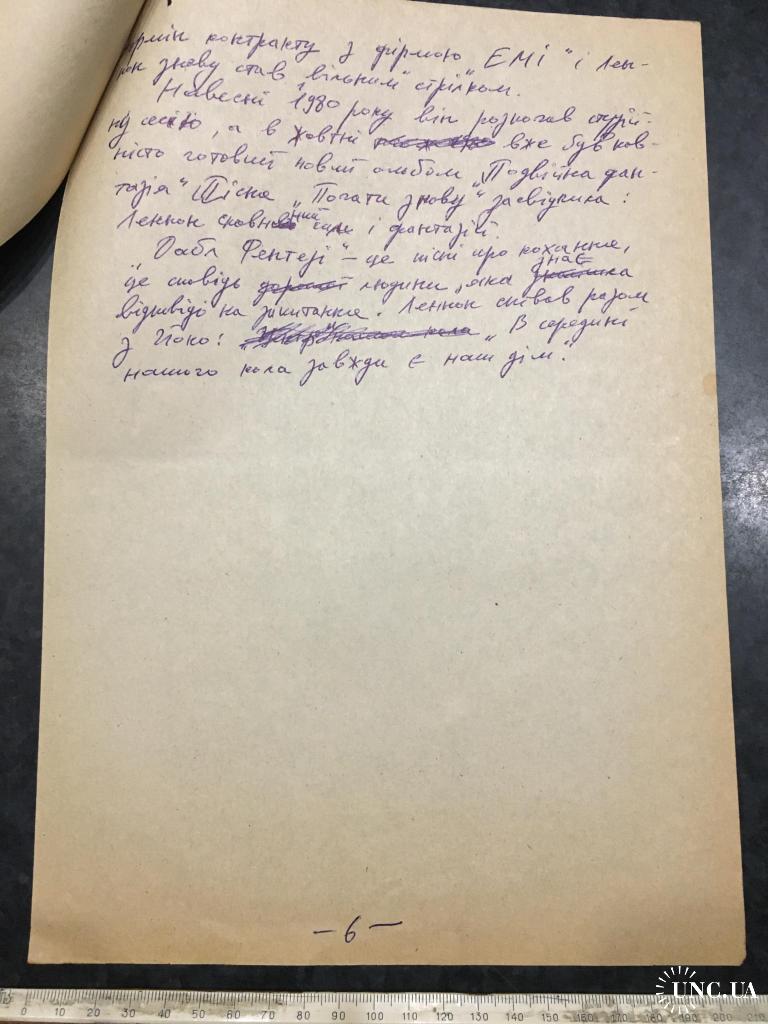 термін контракту з фірмою „ЕМІ“ і Лен-
нон знову став „вільним“ стрілком.
Навесні 1980 року він розпочав студій-
ну сесію, а в жовтні вже був пов-
ністю готовий новий альбом „Подвійна фан-
тазія“. Пісня „Почати знову“ засвідчила:
Леннон сповнений сили і фантазій.
„Дабл Фентезі“ – це пісні про кохання,
це сповідь людини, яка знає
відповіді на запитання. Леннон співав разом
з Йоко: „В середині
нашого кола завжди є наш дім.“
– 6 –
UNC.UA
0 10 20 30 40 50 60 70 80 90 100 110 120 130 140 150 160 170 180 190 200 210